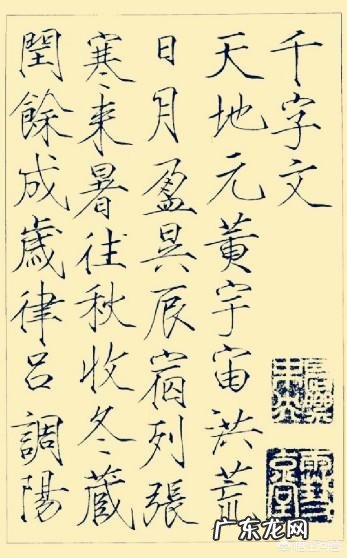 千字文
天地元黄宇宙洪荒
日月盈昃辰宿列張
寒来暑往秋收冬蔵
閏餘成歳律呂調陽
广东龙网